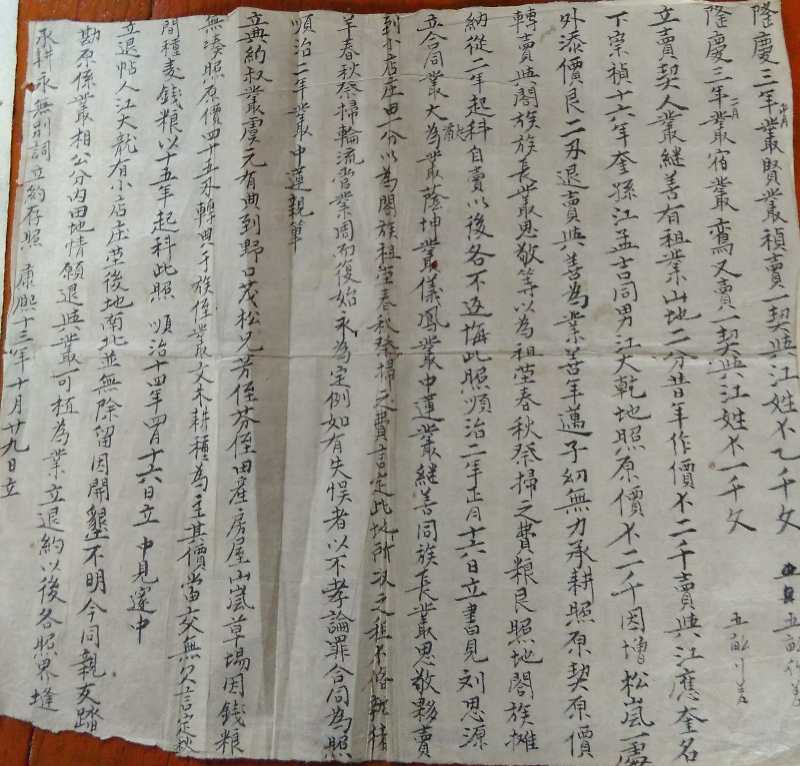 隆慶三年叢賢叢禎賣一契與江姓不乙千文
隆慶三年叢宿叢鸞又賣一契與江姓不一千文
立賣契人叢継善有祖業山地二分昔年作價不二千賣與江應奎名
下崇禎十六年奎孫江孟吉同男江大乾地照原價不二千因增松嵐一處
外添價艮二刄退賣與善為業善年邁子纫無力承耕照原契原價
轉賣與閤族族長叢思敬等以為祖塋春秋祭掃之費粮艮照地閤族攤
納從二年起科自賣以後各不返悔此照順治二年正月十六日立書見刘思源
立合同叢大為叢蔭坤叢儀鳳叢中蓮叢継善同族長叢思敬夥賣
到小店庄田一分以為閤族祖塋春秋祭掃之費言定此地所
羊春秋祭掃輪流當業周而復始永為定例如有失悮者以不孝論罪合同為照
順治二年 叢中蓮親筆
立典約叔叢虞元有典到野口茂松兄芳侄芬侄田產房屋山嵐草場因錢粮
無凑照原價四十五刄轉典于族侄叢文木耕種為主其價當交無欠言定秋
間種麦錢粮以十五年起科此照 順治十四年四月十六日立 中見
立退帖人江大龍有小店庄塋後地南北並無除留因開墾不明今同親友踏
勘原係叢相公分内田地情願退與叢可植為業立退約以後各照界縫
承耕永無別詞立約存照 康熙十三年十月廿九日立